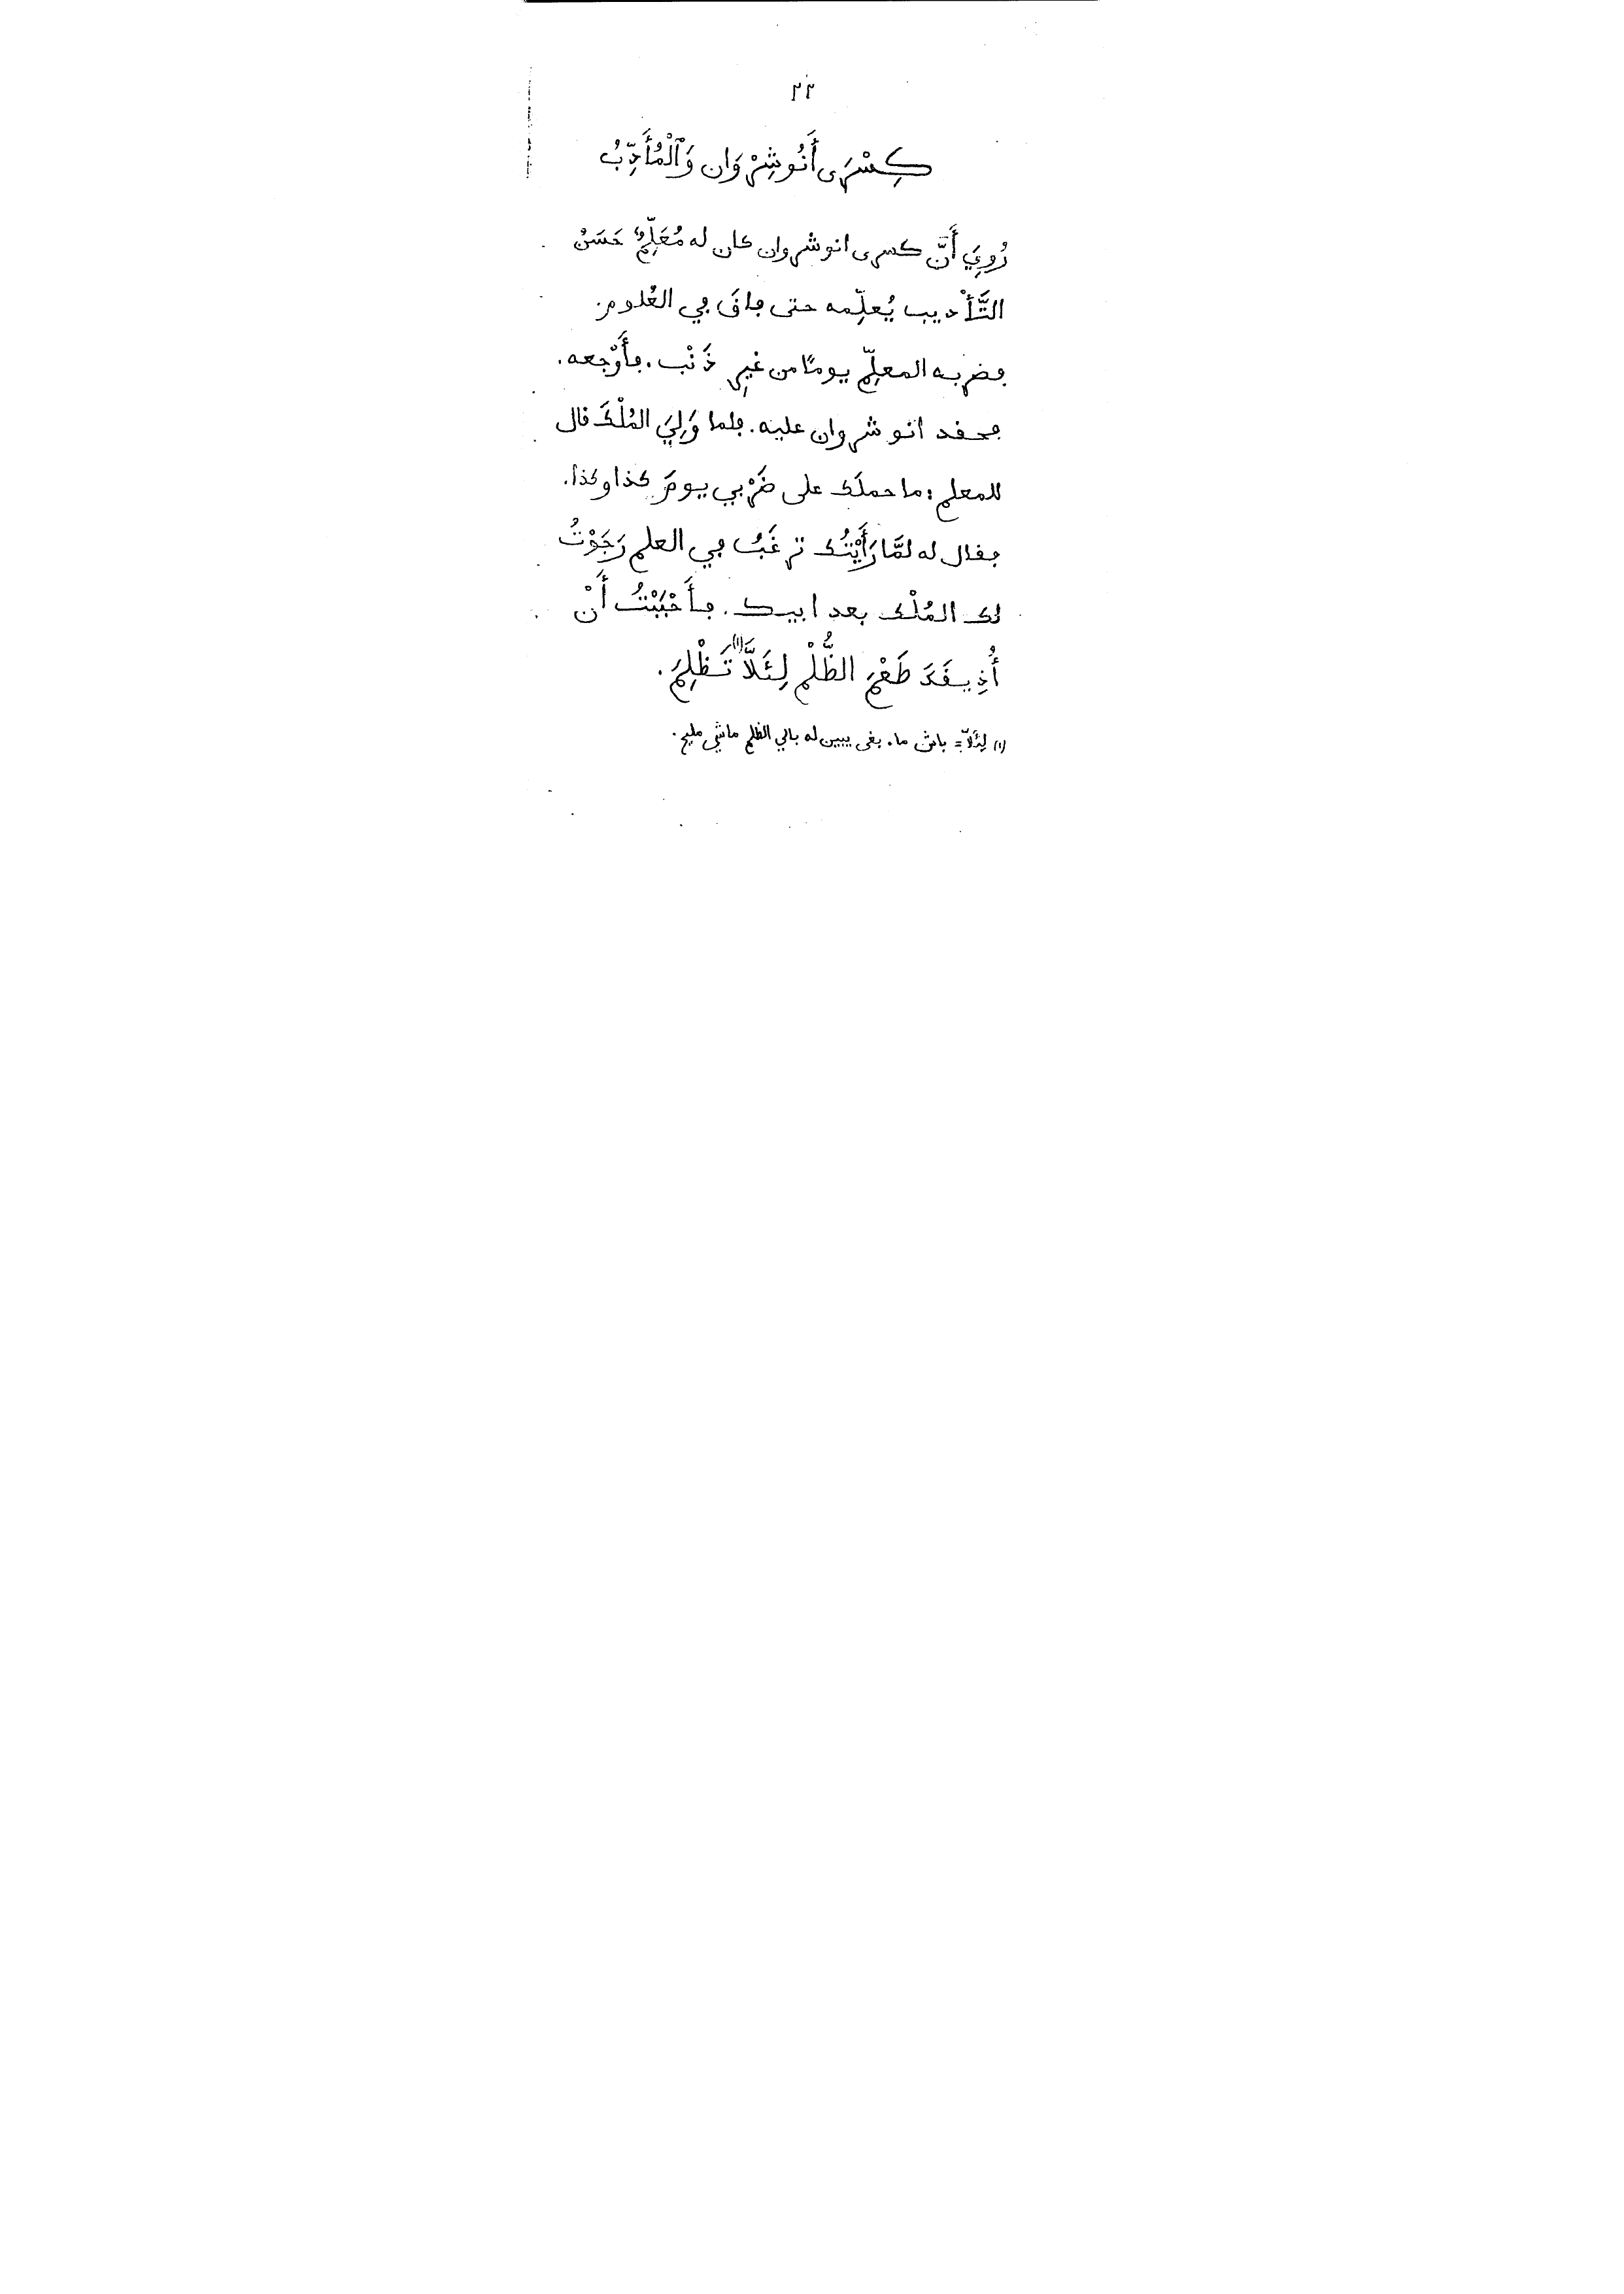 ٢٢
كِسْرَى أَنُوشِرْوَان وَٱلْمُأَدِّبُ
رُوِيَ أَنَّ كسرى انوشروان كان له مُعَلِّمٌ حَسَنُ
التَّأْديب يُعلِّمه حتى فاقَ في العُلوم.
فضربه المعلِّم يومًا من غيرِ ذَنْب. فأَوْجعه.
فحقد انوشروان عليه. فلما وَلِيَ المُلْكَ قال
للمعلم: ما حملَك على ضَرْبي يومَ كذا وكذا.
فقال له لمَّا رَأَيْتُك ترغَبُ في العلم رَجَوْتُ
لك المُلْك بعد ابيك. فأَحْبَبْتُ أَنْ
أُذِيقَكَ طَعْمَ الظُّلْمِ لِئَلاَّ (١) تَظْلِمَ.
(١) لِئَلاَّ = باش ما. بغى يبين له بالي الظلم ماشي مليح.